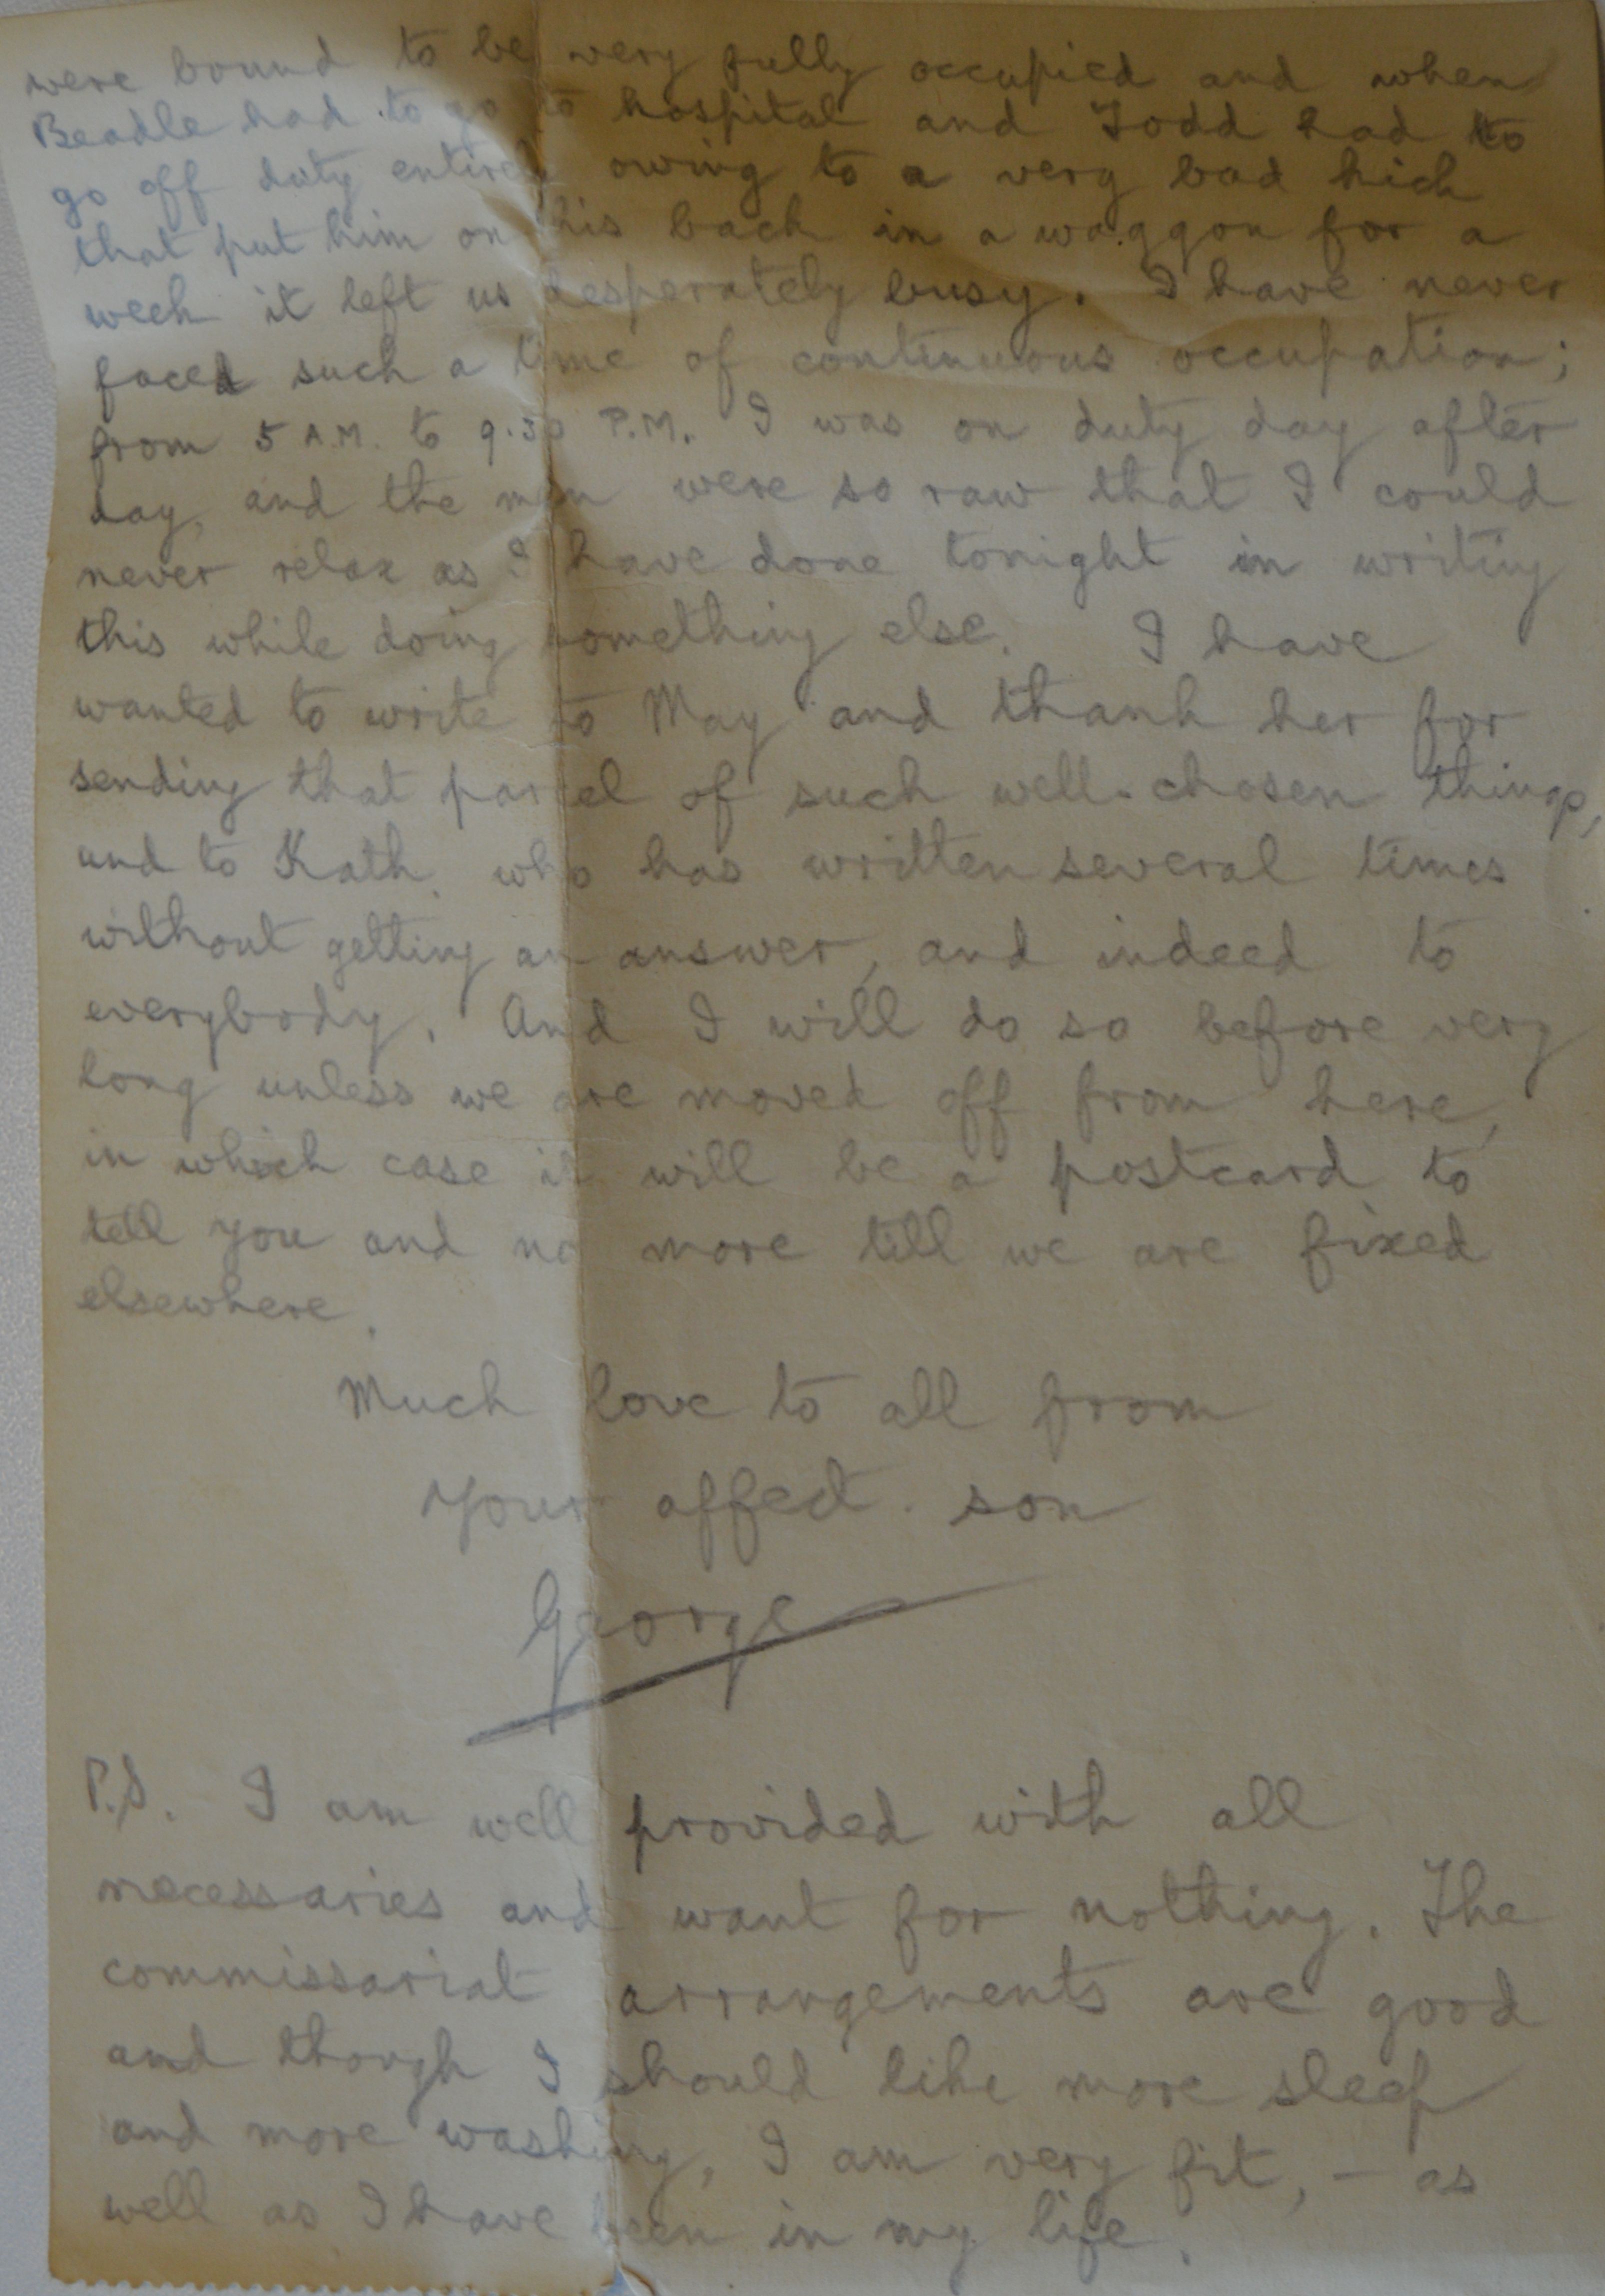 were bound to be very fully occupied and when
Beadle had to go to hospital and Todd had to
go off duty entirely owing to a very bad kick
that put him on his back in a waggon for a
week it left us desperately busy. I have never
faced such a time of continuous occupation;
from 5 A.M. to 9.30 P.M. I was on duty day after
day, and the men were so raw that I could
never relax as I have done tonight in writing
this while doing something else. I have
wanted to write to May and thank her for
sending that parcel of such well-chosen things,
and to Kath. who has written several times
without getting an answer, and indeed to
everybody. And I will do so before very
long unless we are moved off from here,
in which case it will be a postcard to
tell you and no more till we are fixed
elsewhere.
Much love to all from
Your affect. son
George
P.S. I am well provided with all
necessaries and want for nothing. The
commissariat arrangements are good
and though I should like more sleep
and more washing, I am very fit, – as
well as I have been in my life.